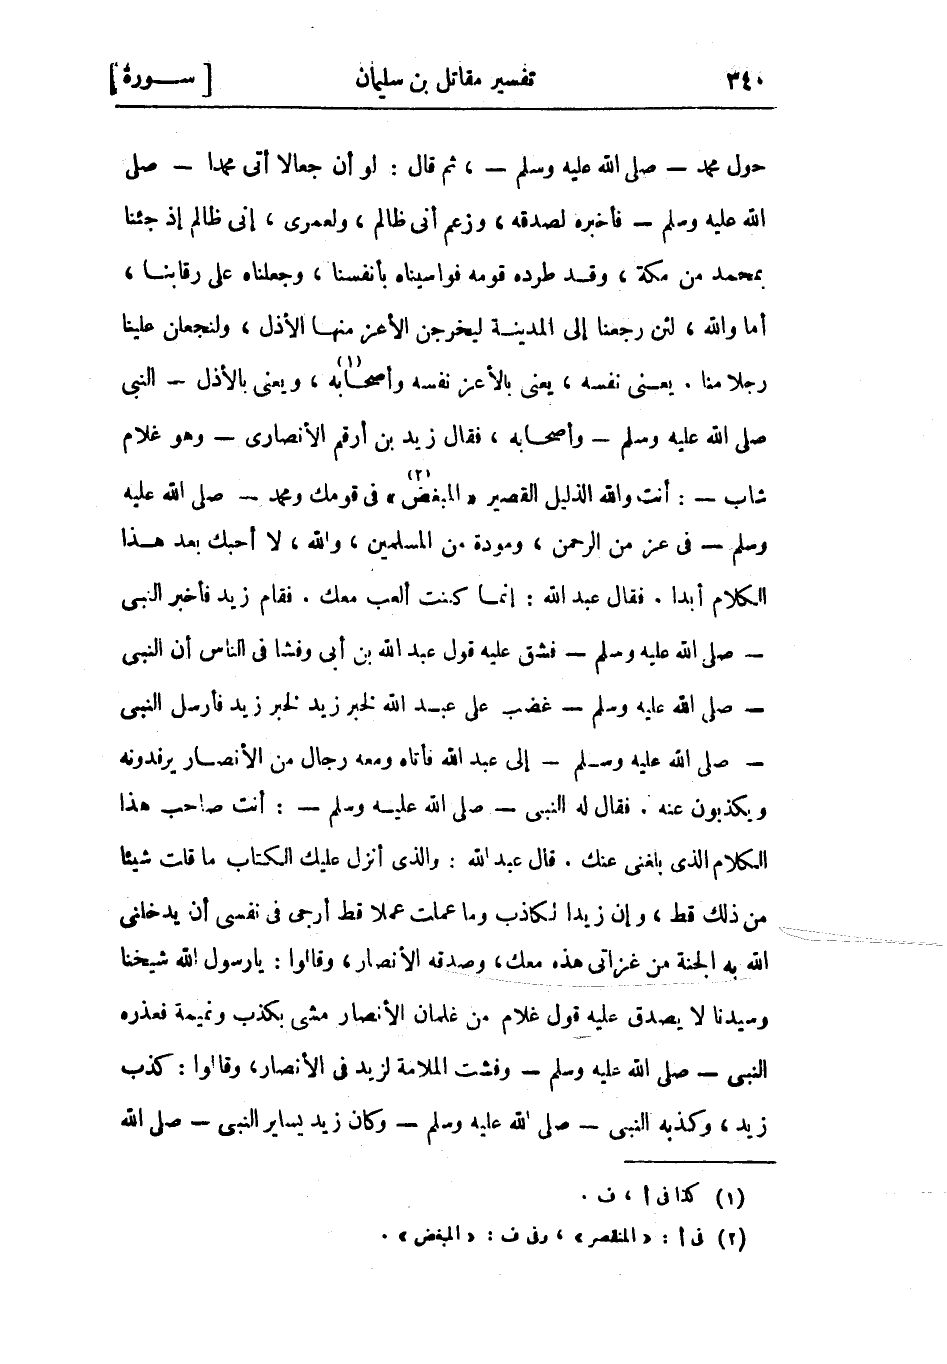 ٣٤٠ تفسير مقاتل بن سليمان [ سورة ]
حول محمد — صلى الله عليه وسلم — ، ثم قال : لو أن جعالا أتى محمدا — صلى
الله عليه وسلم — فأخبره لصدقه ، وزعم أنى ظالم ، ولعمرى ، إنى ظالم إذ جئنا
بمحمد من مكة ، وقد طرده قومه فواسيناه بأنفسنا ، وجعلناه على رقابنا ،
أما والله ، لئن رجعنا إلى المدينة ليخرجن الأعز منها الأذل ، ولنجعلن علينا
رجلا منا . يعنى نفسه ، يعنى بالأعز نفسه وأصحابه (١) ، ويعنى بالأذل — النبى
صلى الله عليه وسلم — وأصحابه ، فقال زيد بن أرقم الأنصارى — وهو غلام
شاب — : أنت والله الذليل القصير « المبغض » (٢) فى قومك ومحمد — صلى الله عليه
وسلم — فى عز من الرحمن ، ومودة من المسلمين ، والله ، لا أحبك بعد هذا
الكلام أبدا . فقال عبد الله : إنما كنت ألعب معك . فقام زيد فأخبر النبى
— صلى الله عليه وسلم — فشق عليه قول عبد الله بن أبى وفشا فى الناس أن النبى
— صلى الله عليه وسلم — غضب على عبد الله لخبر زيد لخبر زيد فأرسل النبى
— صلى الله عليه وسلم — إلى عبد الله فأتاه ومعه رجال من الأنصار يرفدونه
ويكذبون عنه . فقال له النبى — صلى الله عليه وسلم — : أنت صاحب هذا
الكلام الذى بلغنى عنك . قال عبد الله : والذى أنزل عليك الكتاب ما قلت شيئا
من ذلك قط ، وإن زيدا لكاذب وما عملت عملا قط أرجى فى نفسى أن يدخلنى
الله به الجنة من غزاتى هذه معك ، وصدقه الأنصار ، وقالوا : يارسول الله شيخنا
وسيدنا لا يصدق عليه قول غلام من غلمان الأنصار مشى بكذب ونميمة فعذره
النبى — صلى الله عليه وسلم — وفشت الملامة لزيد فى الأنصار ، وقالوا : كذب
زيد ، وكذبه النبى — صلى الله عليه وسلم — وكان زيد يساير النبى — صلى الله
(١) كذا فى أ ، ف .
(٢) فى أ : « المنقصر » ، وفى ف : « المبغض » .